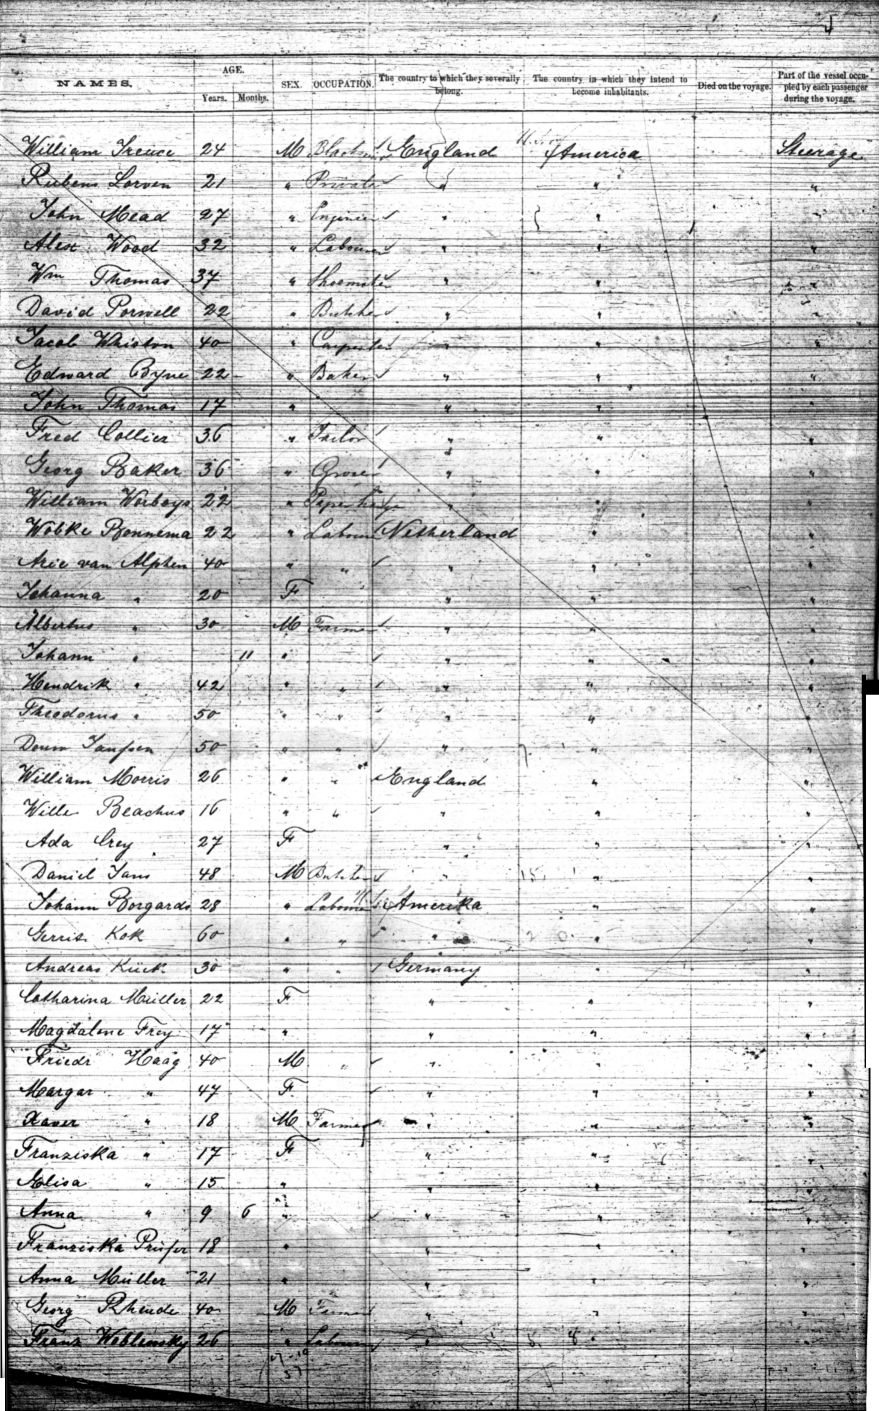 NAMES. AGE. Years. Months. SEX. OCCUPATION. The country to which they severally belong. The country in which they intend to become inhabitants. Died on the voyage. Part of the vessel occupied by each passenger during the voyage.
William 24 M England America Steerage
Rubens Lorven 21 " " " "
John Mead 27 " Engineer " " "
Alex Wood 32 " Labourer " " "
Wm Thomas 37 " " " "
David Porwell 22 " Butcher " " "
Jacob Whiston 40 " Carpenter " " "
Edward Byne 22 " Baker " " "
John Thomas 17 " " " "
Fred Collier 36 " Tailor " " "
Georg Baker 36 " Grocer " " "
William Worboys 22 " " " "
Wobke Bonnema 22 " Labourer Netherland " "
Arie van Alphen 40 " " " " "
Johanna " 20 F " " "
Albertus " 30 M Farmer " " "
Johann " 11 " " " "
Hendrik " 42 " " " " "
Theodorus " 50 " " " " "
Douw Janssen 50 " " " " "
William Morris 26 " " England " "
Wille Beachus 16 " " " " "
Ada Grey 27 F " " "
Daniel Jans 48 M Butcher " " "
Johann Borgards 28 " Labourer Amerika " "
Gerris Kok 60 " " " " "
Andreas Kück 30 " " Germany " "
Catharina Müller 22 F " " "
Magdalene Frey 17 " " " "
Friedr Haag 40 M " " " "
Margar " 47 F " " "
Xaver " 18 M Farmer " " "
Franziska " 17 F " " "
Elisa " 15 " " " "
Anna " 9 6 " " " "
Franziska Prüfer 18 " " " "
Anna Müller 21 " " " "
Georg Rhende 40 M Farmer " " "
Franz Woblewsky 26 " Labourer " " "